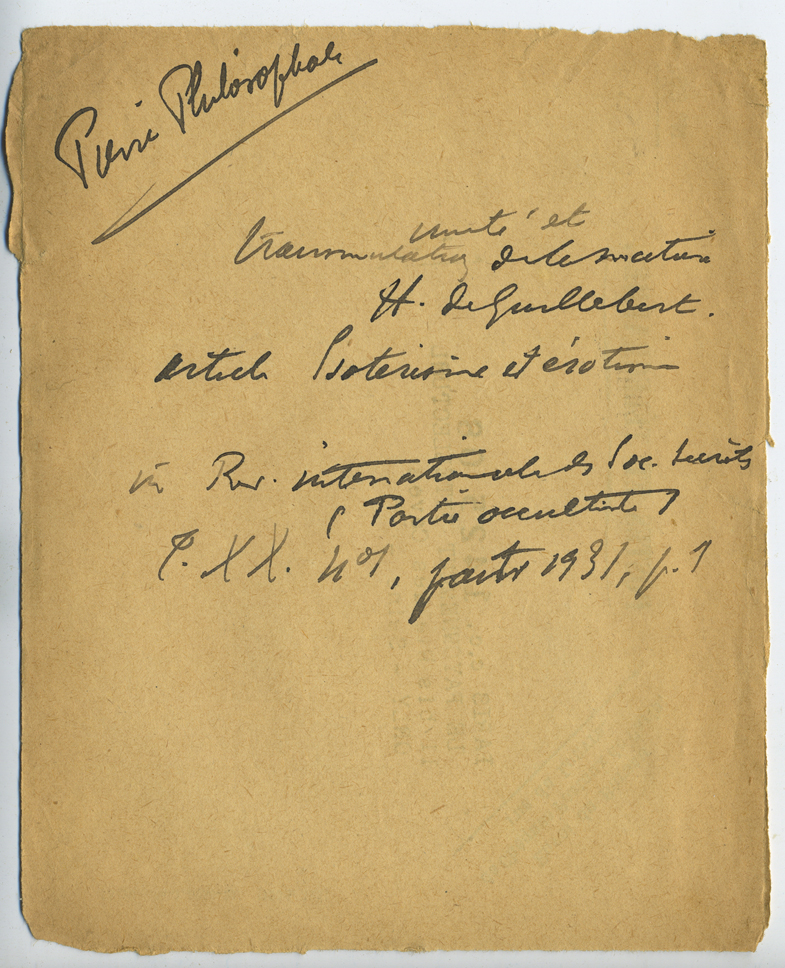 Pierre Philosophale
unité et
transmutation de la matière
H. de Guillebert.
article Esoterisme et érotisme
in Rev. internationale des Soc. secrètes
(Partie occultiste)
T. XX. n° 1, janvr 1931, p. 1